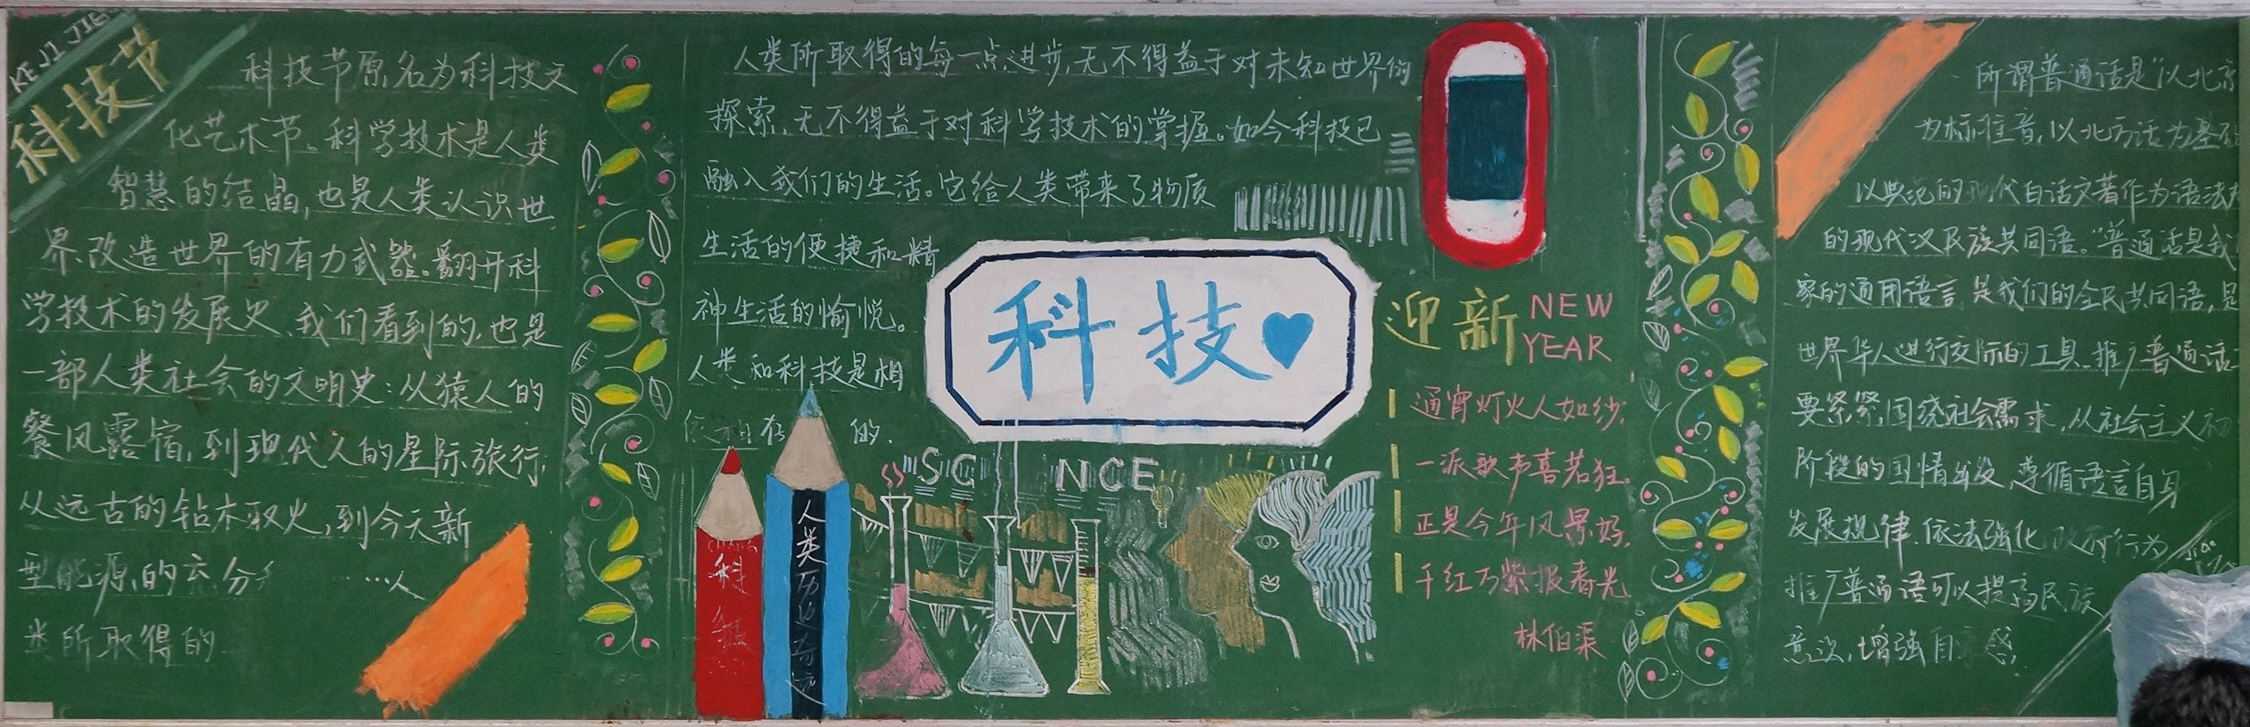 KE JI JIE
科技节
科技节原名为科技文
化艺术节。科学技术是人类
智慧的结晶,也是人类认识世
界.改造世界的有力武器。翻开科
学技术的发展史、我们看到的,也是
一部人类社会的文明史:从猿人的
餐风露宿,到现代人的星际旅行,
从远古的钻木取火,到今天新
型能源,的充分
类所取得的
人类所取得的每一点进步,无不得益于对未知世界的
探索,无不得益于对科学技术的掌握。如今科技已
融入我们的生活。它给人类带来了物质
生活的便捷和精
神生活的愉悦。
人类和科技是相
的.
科技
迎新 NEW
YEAR
通宵灯火人如织,
一派歌声喜若狂。
正是今年风景好,
千红万紫报春光
林伯渠
NICE
科
人类历史奇迹
所谓普通话是"以北京
为标准音,以北方话为基础
以典范的现代白话文著作为语法
的现代汉民族共同语。"普通话是我
家的通用语言,是我们的全民共同语,是
世界华人进行交际的工具.推广普通话
要紧紧围绕社会需求,从社会主义初
阶段的国情出发,遵循语言自身
发展规律.依法强化政府行为
推广普通话可以提高民族
意识,增强自 感.